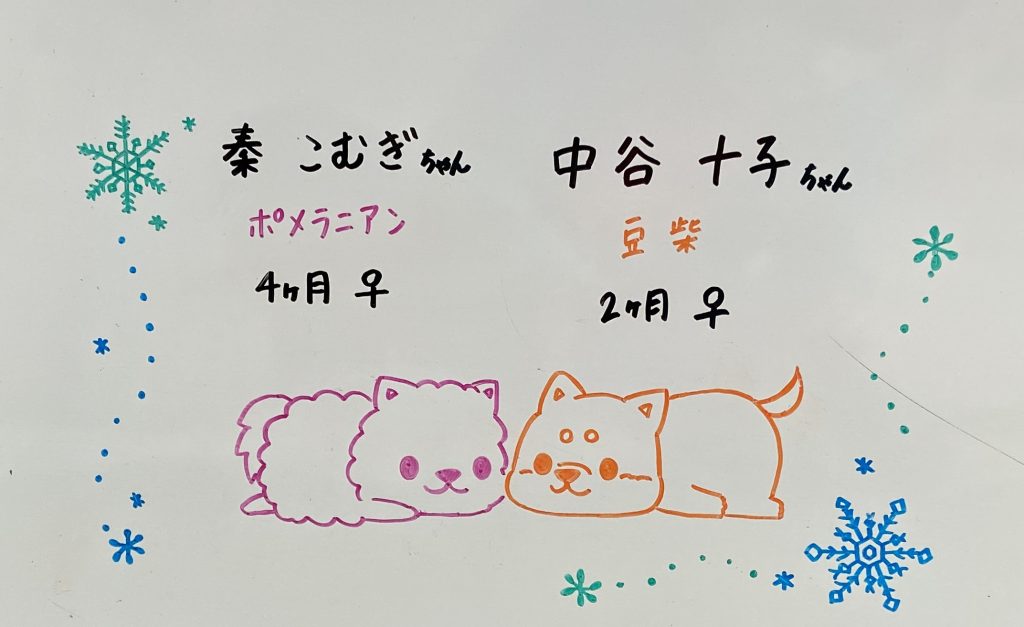 秦 こむぎちゃん
ポメラニアン
4ヶ月 ♀
中谷 十子ちゃん
豆柴
2ヶ月 ♀